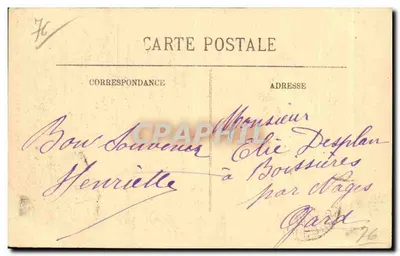 76
CARTE POSTALE
CORRESPONDANCE
ADRESSE
Bon Souvenir
Henriette
Monsieur
Elie Desplan
à Boissières
par Nages
Gard
76
CPARAMA